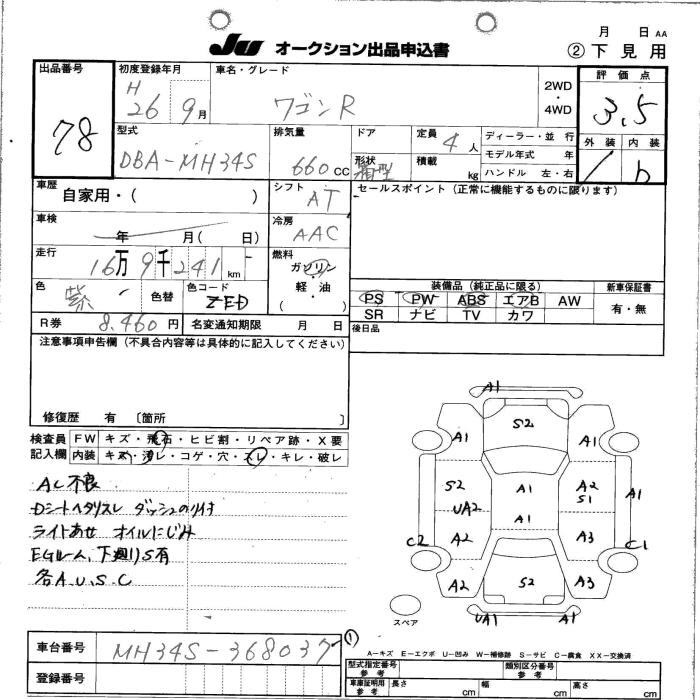 JU オークション出品申込書
月 日 AA
② 下見用
出品番号
78
初度登録年月
H 26 9月
車名・グレード
ワゴンR
2WD・4WD
評価点
3.5
外装 内装
b
型式
DBA-MH34S
排気量
660cc
ドア
形状
箱型
定員 4人
積載 kg
ディーラー・並 行
モデル年式 年
ハンドル 左・右
車歴
自家用・( )
シフト
AT
セールスポイント(正常に機能するものに限ります)
車検
年 月( 日)
冷房
AAC
走行
16万9千241km
燃料
ガソリン
軽・油
( )
色
紫
色替
色コード
ZED
装備品(純正品に限る)
新車保証書
PS PW ABS エアB AW
SR ナビ TV カワ
有・無
R券
8,460円
名変通知期限 月 日
後日品
注意事項申告欄(不具合内容等は具体的に記入してください)
修復歴 有 〔箇所 〕
検査員記入欄
FW キズ・飛石・ヒビ割・リペア跡・X要
内装 キズ・汚レ・コゲ・穴・スレ・キレ・破レ
AC不良
Dシートヘタリスレ ダッシュのり付
ライトあせ オイルにじみ
EGルーム、下廻りS有
各A.U.S.C
A1
S2
A1 A1
S2 A1 A2
UA2 S1 A1
A1
A2 A3
C2 C1
A2 S2 A3
UA1 A1
スペア
車台番号
MH34S-368037
①
登録番号
A-キズ E-エクボ U-凹み W-補修跡 S-サビ C-腐食 XX-交換済
型式指定番号 参考
類別区分番号 参考
車庫証明用 参考
長さ cm
幅 cm
高さ cm